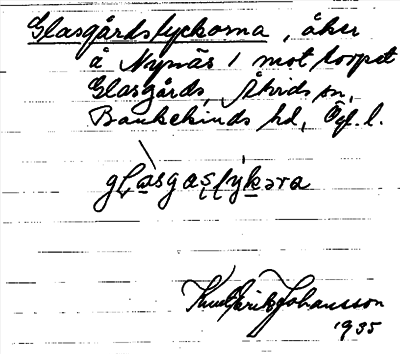 Glasgårdstyckorna, åker
å Nynäs 1 mot torpet
Glasgårds, Åtvids sn,
Bankekinds hd, Ög. l.
glasgaʂʈykəra
Knut Erik Johansson
1935